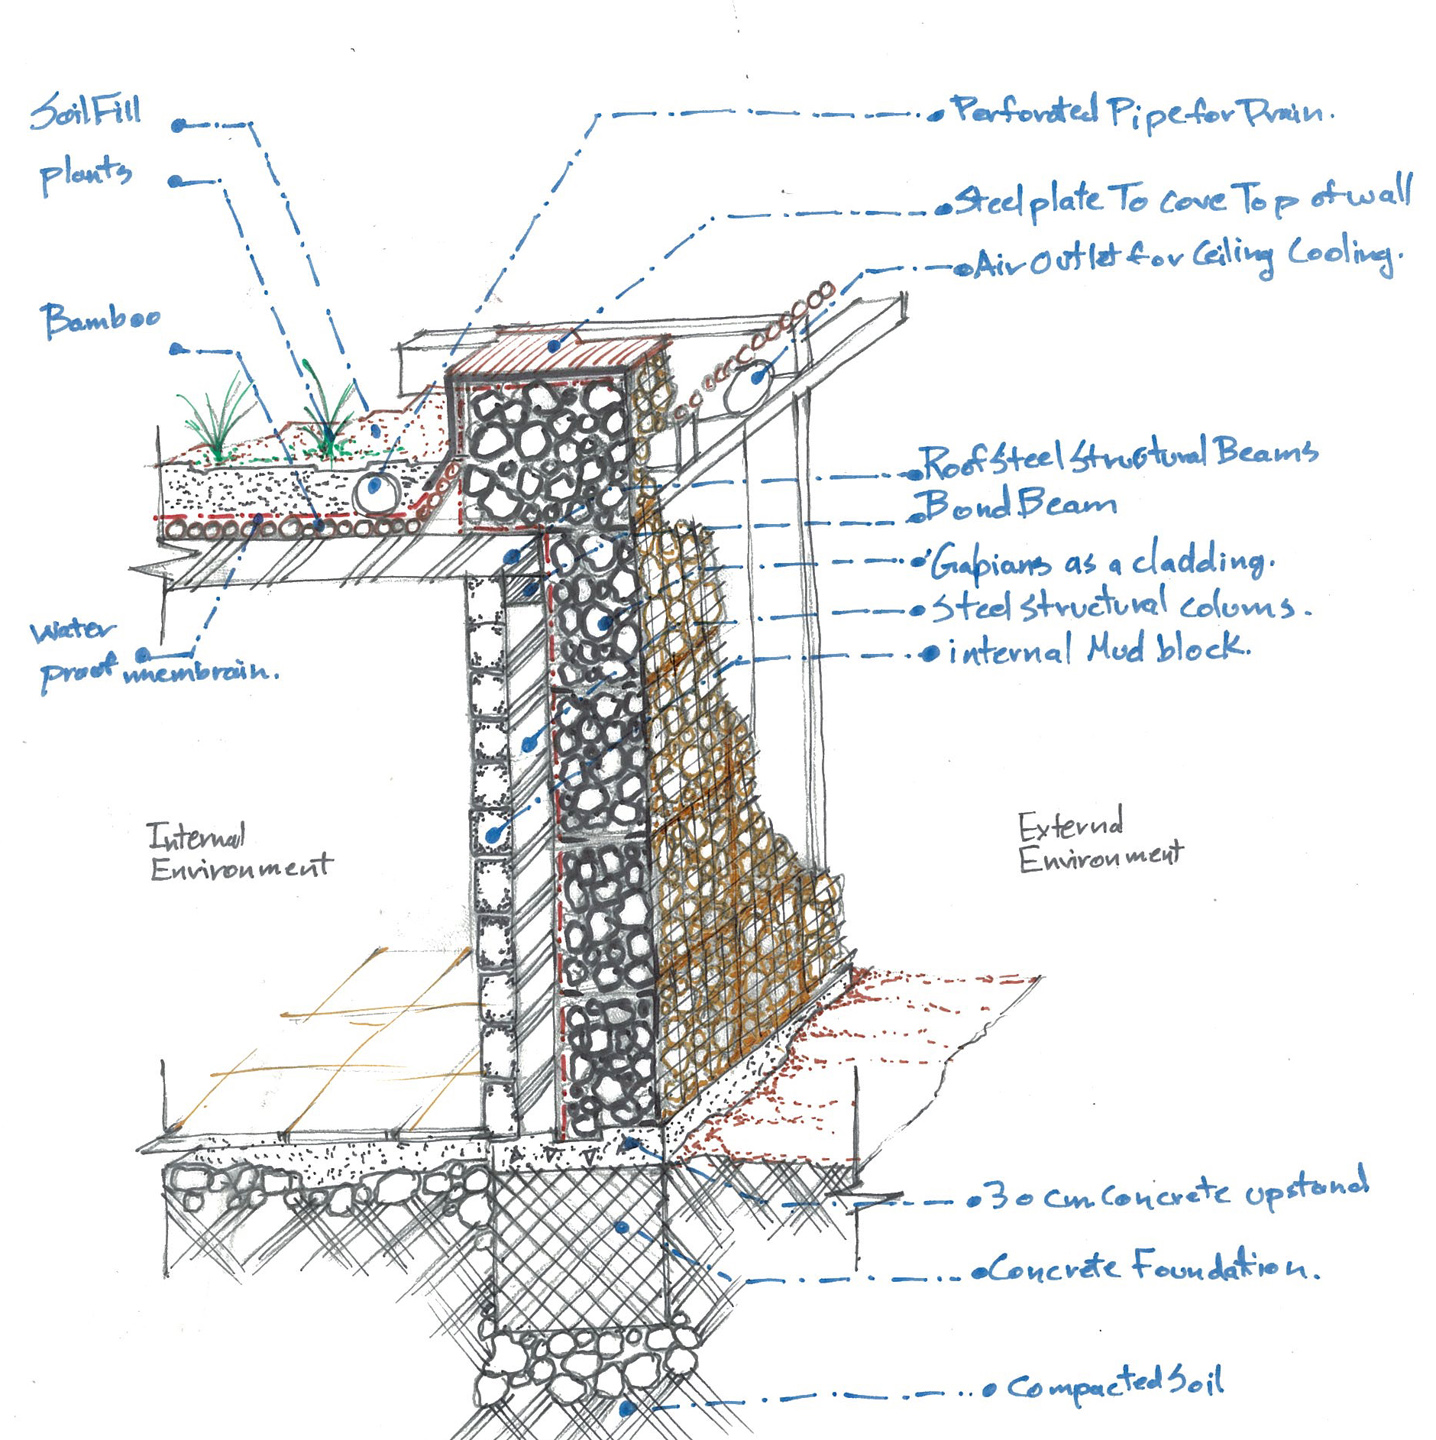 Soil Fill
plants
Bamboo
water
proof membrain.
Internal
Environment
Perforated Pipe for Drain.
Steel plate To cove Top of wall
Air Outlet for Ceiling Cooling.
Roof Steel Structural Beams
Bond Beam
Gabians as a cladding.
Steel Structural colums.
internal Mud block.
External
Environment
30 cm Concrete upstand
Concrete Foundation.
Compacted Soil